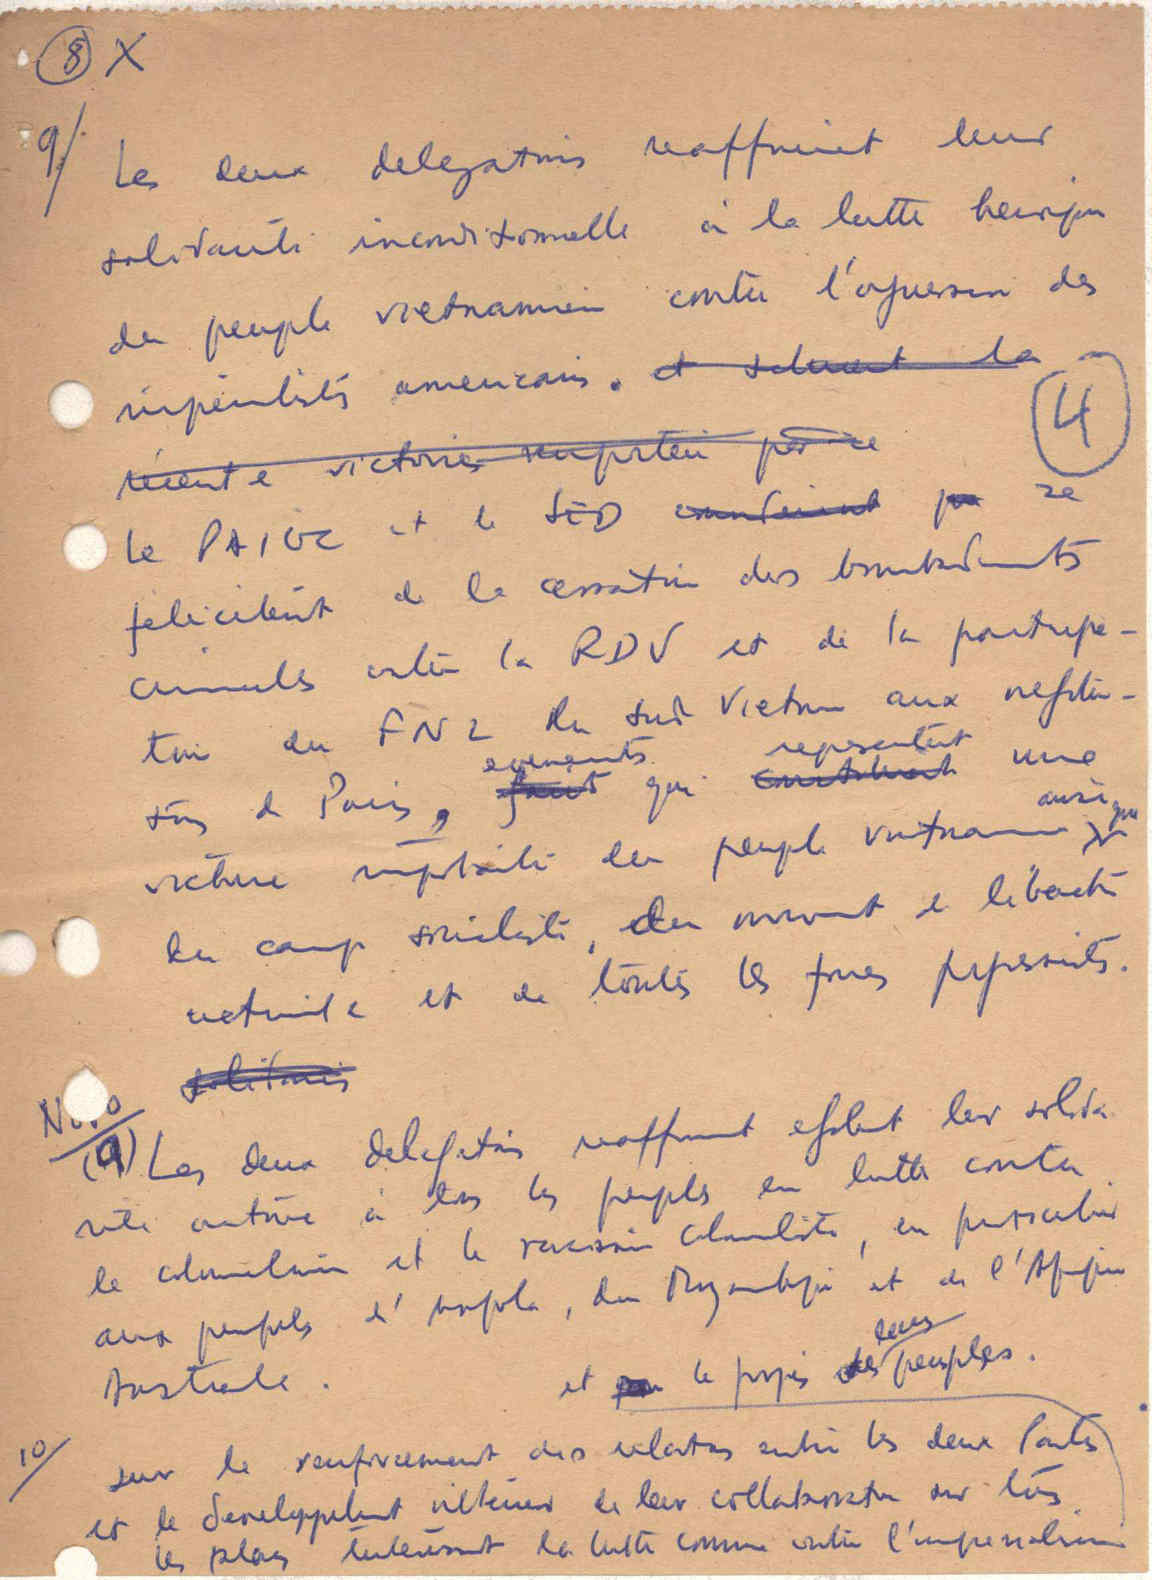 8 X
9/ Les deux delegations reaffirment leur
solidarité inconditionnelle à la lutte heroique
du peuple vietnamien contre l'agression des
imperialistes americains. et saluent la
récente victoires remportée par ce
4
le PAIGC et le SED se
felicitent de la cessation des bombardements
criminels contre la RDV et de la participa-
tion du FNL du Sud Vietnam aux negotia-
evenements representent
tions de Paris, faits qui constituent une
ainsi que
victoire importante du peuple vietnamien
du camp socialiste, du mouvement de liberation
nationale et de toutes les forces progressistes.
solidaires
Novo
(9) Les deux delegations reaffirment egalement leur solida
rité active à tous les peuples en lutte contre
le colonialisme et le racisme colonialiste, en particulier
aux peuples d'Angola, du Mozambique et de l'Afrique
leurs
Australe. et le progrès des peuples.
10/ sur le renforcement des relations entre les deux Partis
et le developpement ulterieur de leur collaboration sur tous
les plans interessant la lutte commune contre l'imperialisme